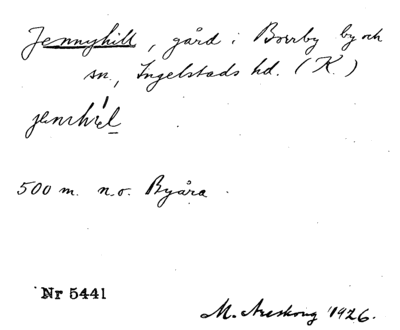 Jennyhill, gård i Borrby by och
sn., Ingelstads hd. (K.)
500 m. n.o. Byåra.
Nr 5441
M. Areskoug 1926.